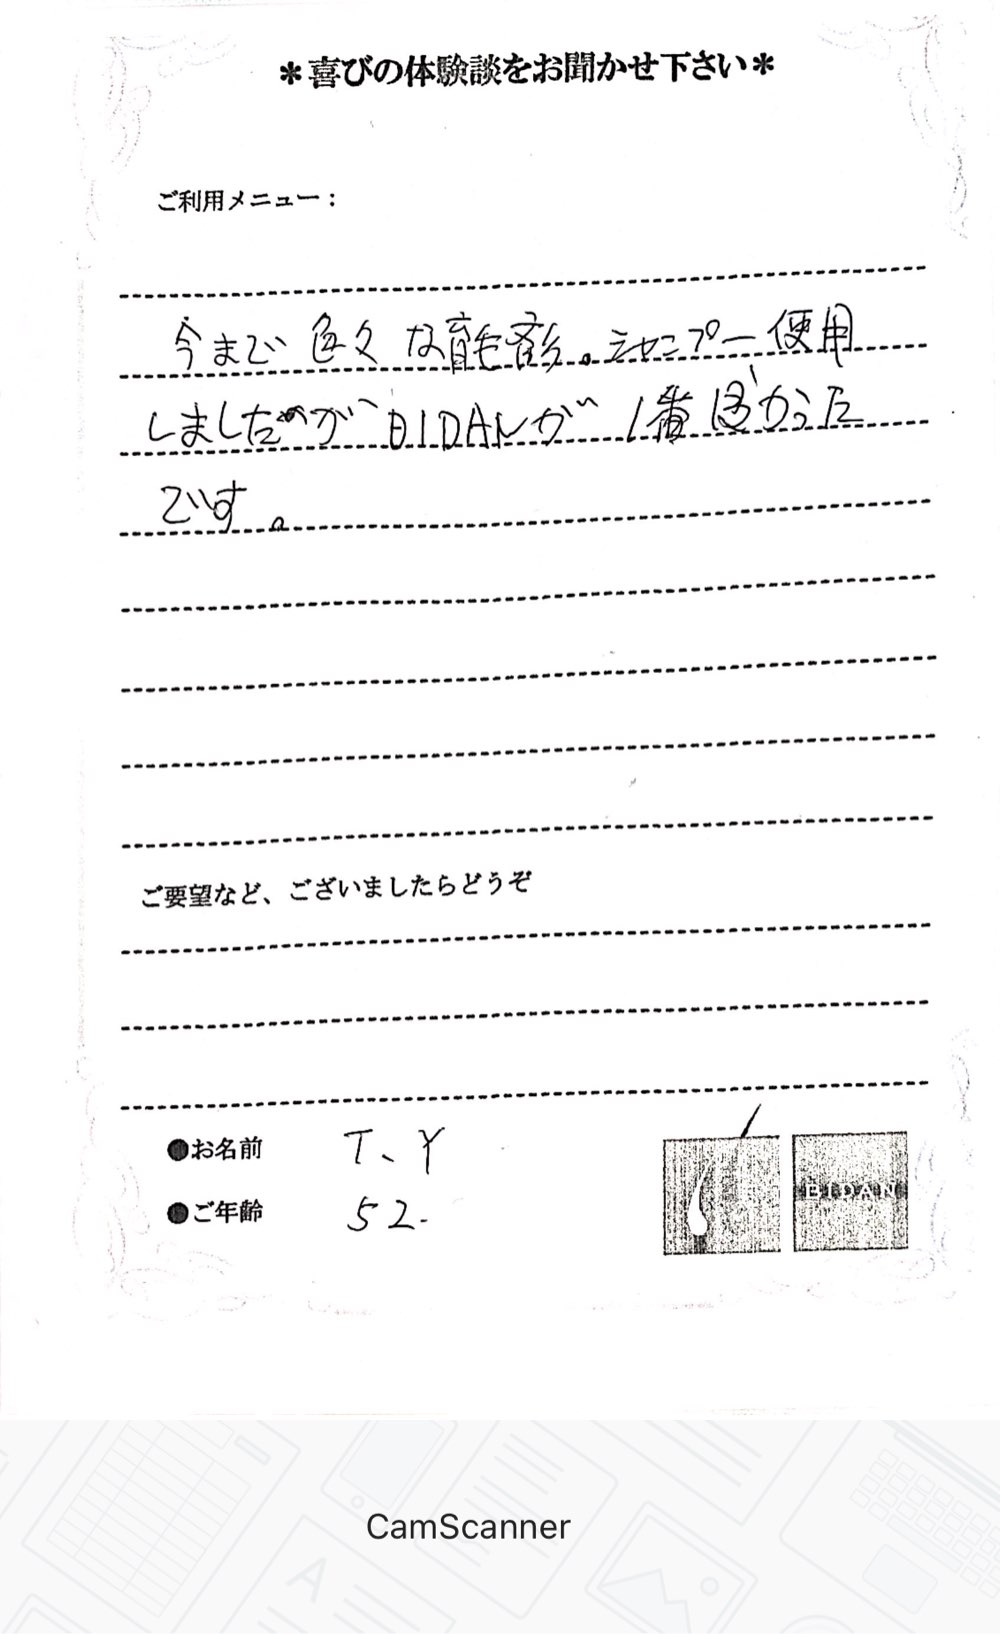 ＊喜びの体験談をお聞かせ下さい＊
ご利用メニュー：
今まで色々な育毛剤。シャンプー使用
しましたがBIDANが1番良かった
です。
ご要望など、ございましたらどうぞ
●お名前 T、Y
●ご年齢 52.
BIDAN
CamScanner